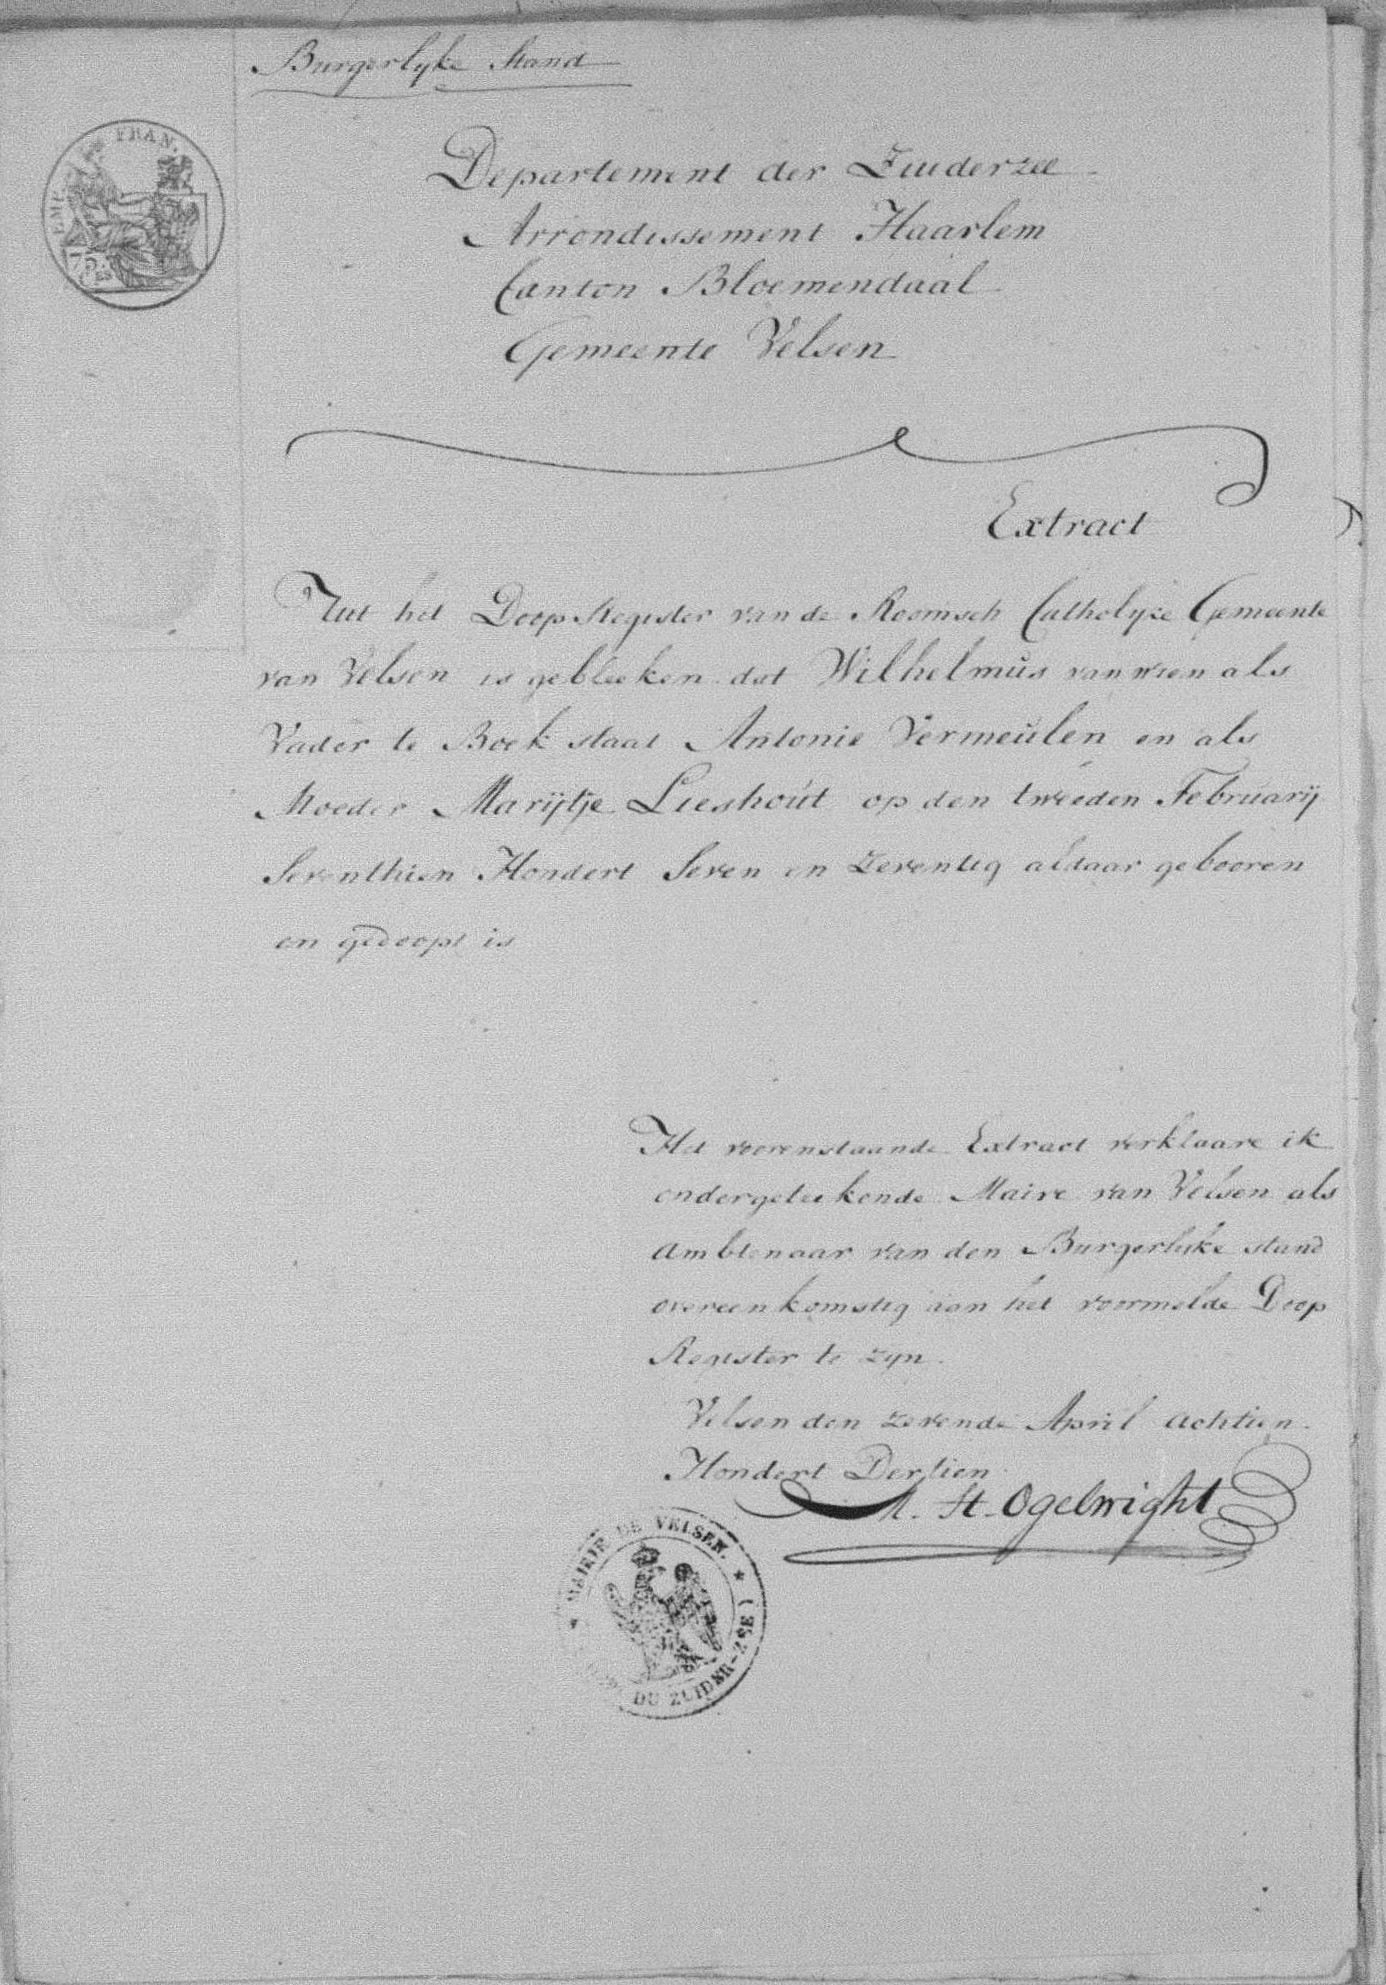 Burgerlyke Stand
EMP. FRAN.
75 CES
Departement der Zuiderzee
Arrondissement Haarlem
Canton Bloemendaal
Gemeente Velsen
Extract
Uit het Doop Register van de Roomsch Catholyke Gemeente
van Velsen is gebleeken dat Wilhelmus van wien als
Vader te Boek staat Antonie Vermeulen en als
Moeder Marijtje Lieshout op den tweeden Februarij
Seventhien Hondert Seven en Zeventig aldaar gebooren
en gedoopt is
Het voorenstaande Extract verklaare ik
ondergeteekende Maire van Velsen als
Ambtenaar van den Burgerlyke stand
overeenkomstig aan het voormelde Doop
Register te zyn.
Velsen den zevende April Achtien
Hondert Dertien
St. Ogelwight
MAIRIE DE VELSEN.
DU ZUIDER-ZÉE